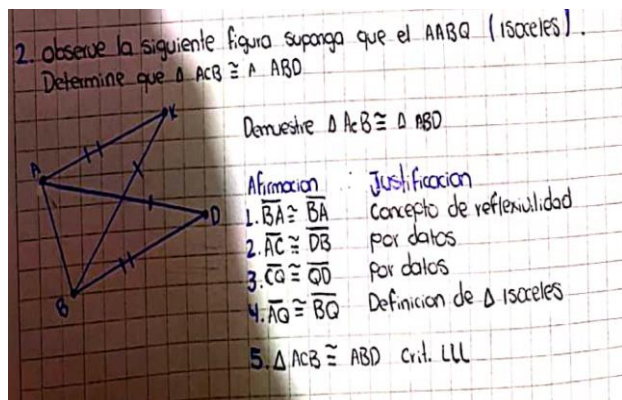 2. observe la siguiente figura suponga que el AABQ (isoceles).
Determine que Δ ACB ≅ Λ ABD
K
A
D
B
Demuestre Δ ACB ≅ Δ ABD
Afirmacion : Justificacion
1. B̅A̅ ≅ B̅A̅ Concepto de reflexivilidad
2. A̅C̅ ≅ D̅B̅ por datos
3. C̅Q̅ ≅ Q̅D̅ Por datos
4. A̅Q̅ ≅ B̅Q̅ Definicion de Δ isoceles
5. Δ ACB ≅ ABD Crit. LLL